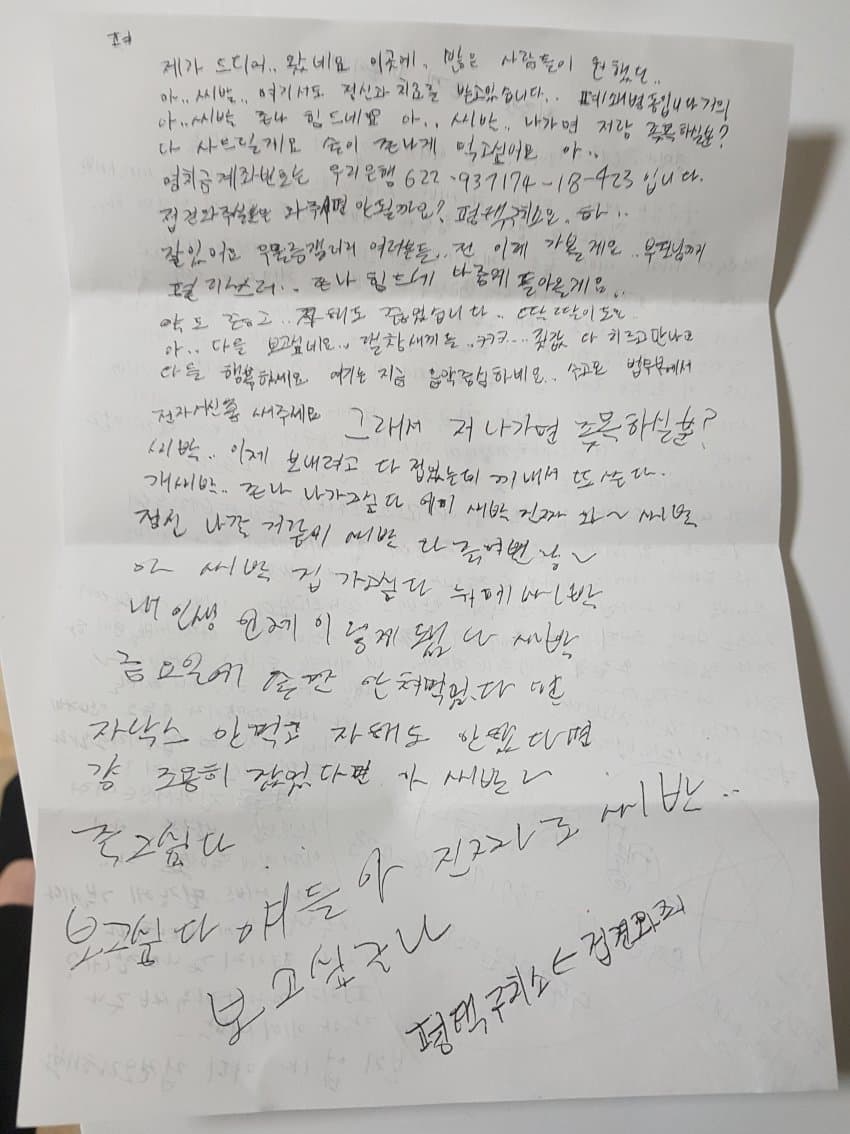 제가 드디어.. 왔네요 이곳에.. 많은 사람들이 원했던..
아.. 씨발.. 여기서도 정신과 치료를 받고있습니다.. 폐쇄병동입니다 거의
아.. 씨발 존나 힘드네요 아.. 씨발.. 나가면 저랑 족목하실분?
다 사드릴게요 술이 존나게 먹고싶어요 아..
영치금계좌번호는 우리은행 622-937174-18-423 입니다.
접견와주실분은 와주시면 안될까요? 평택구치소요. 하..
잘있어요 우울증갤러리 여러분들.. 전 이제 가볼게요.. 부모님까지
존나 힘드네 나중에 돌아올게요..
약도 줄이고.. 살도 쪘었습니다..
아.. 다들 보고싶네요.. 갤창새끼들.. ㅋㅋㅋ... 죗값 다 치르고 만나고
다들 행복하세요 여기는 지금 음악중심하네요.. 수고요 법무부에서
전자서신좀 써주세요 그래서 저 나가면 족목하실분?
씨발.. 이제 보내려고 다 접었는데 꺼내서 또 쓴다.
개씨발.. 존나 나가고싶다 에미 씨발 진짜 와~ 씨발
정신 나갈 거같애 씨발 다 죽여버린당~
아 씨발 집 가고싶다 씨발
내 인생 언제 이렇게 됐냐 씨발
금요일에 술만 안처먹었다면
자낙스 안먹고 자해도 안했다면
걍 조용히 잤었다면 아 씨발~
죽고싶다
보고싶다 얘들아 진짜로 씨발..
보고싶구나
평택구치소 ← 접견와줘